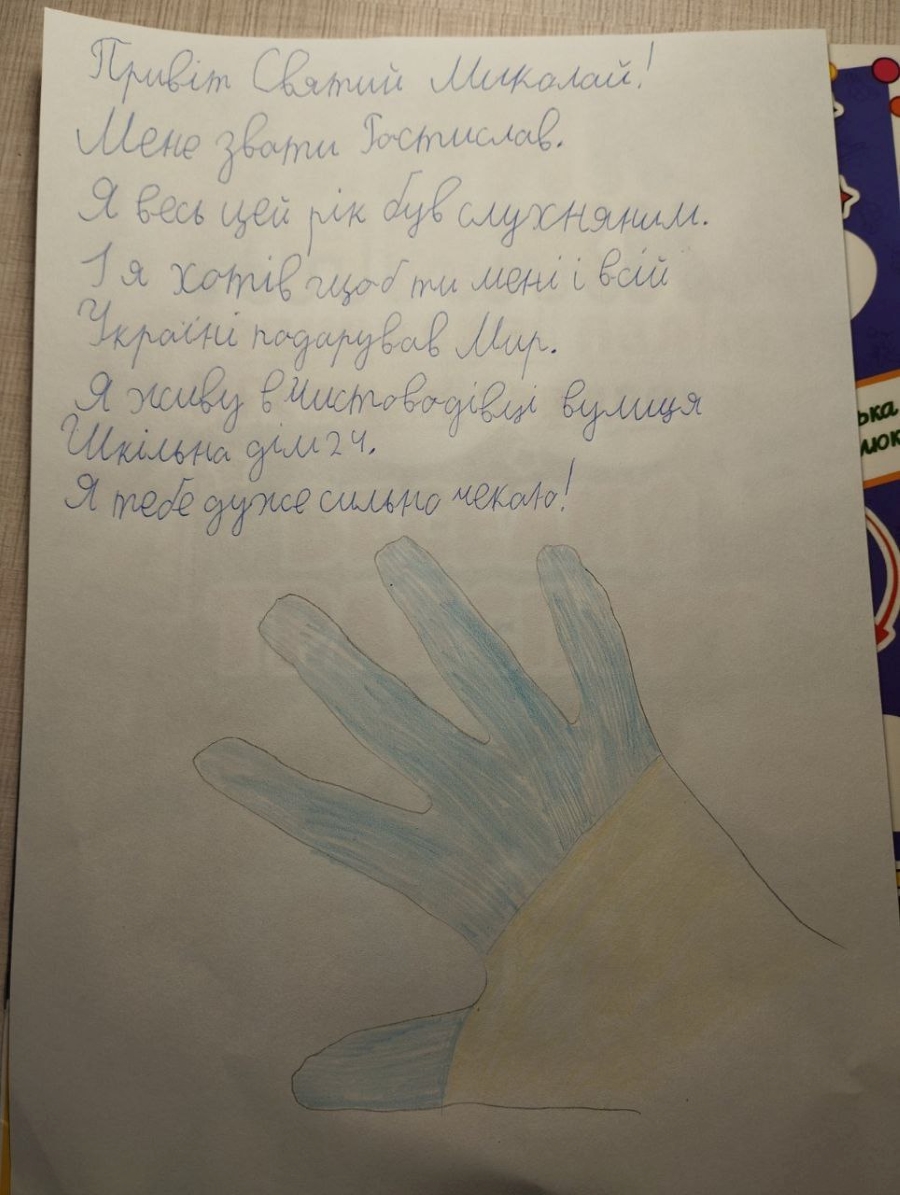 Привіт Святий Миколай!
Мене звати Ростислав.
Я весь цей рік був слухняним.
І я хотів щоб ти мені і всій
Україні подарував Мир.
Я живу в Чистоводівці вулиця
Шкільна дім 24.
Я тебе дуже сильно чекаю!
ька